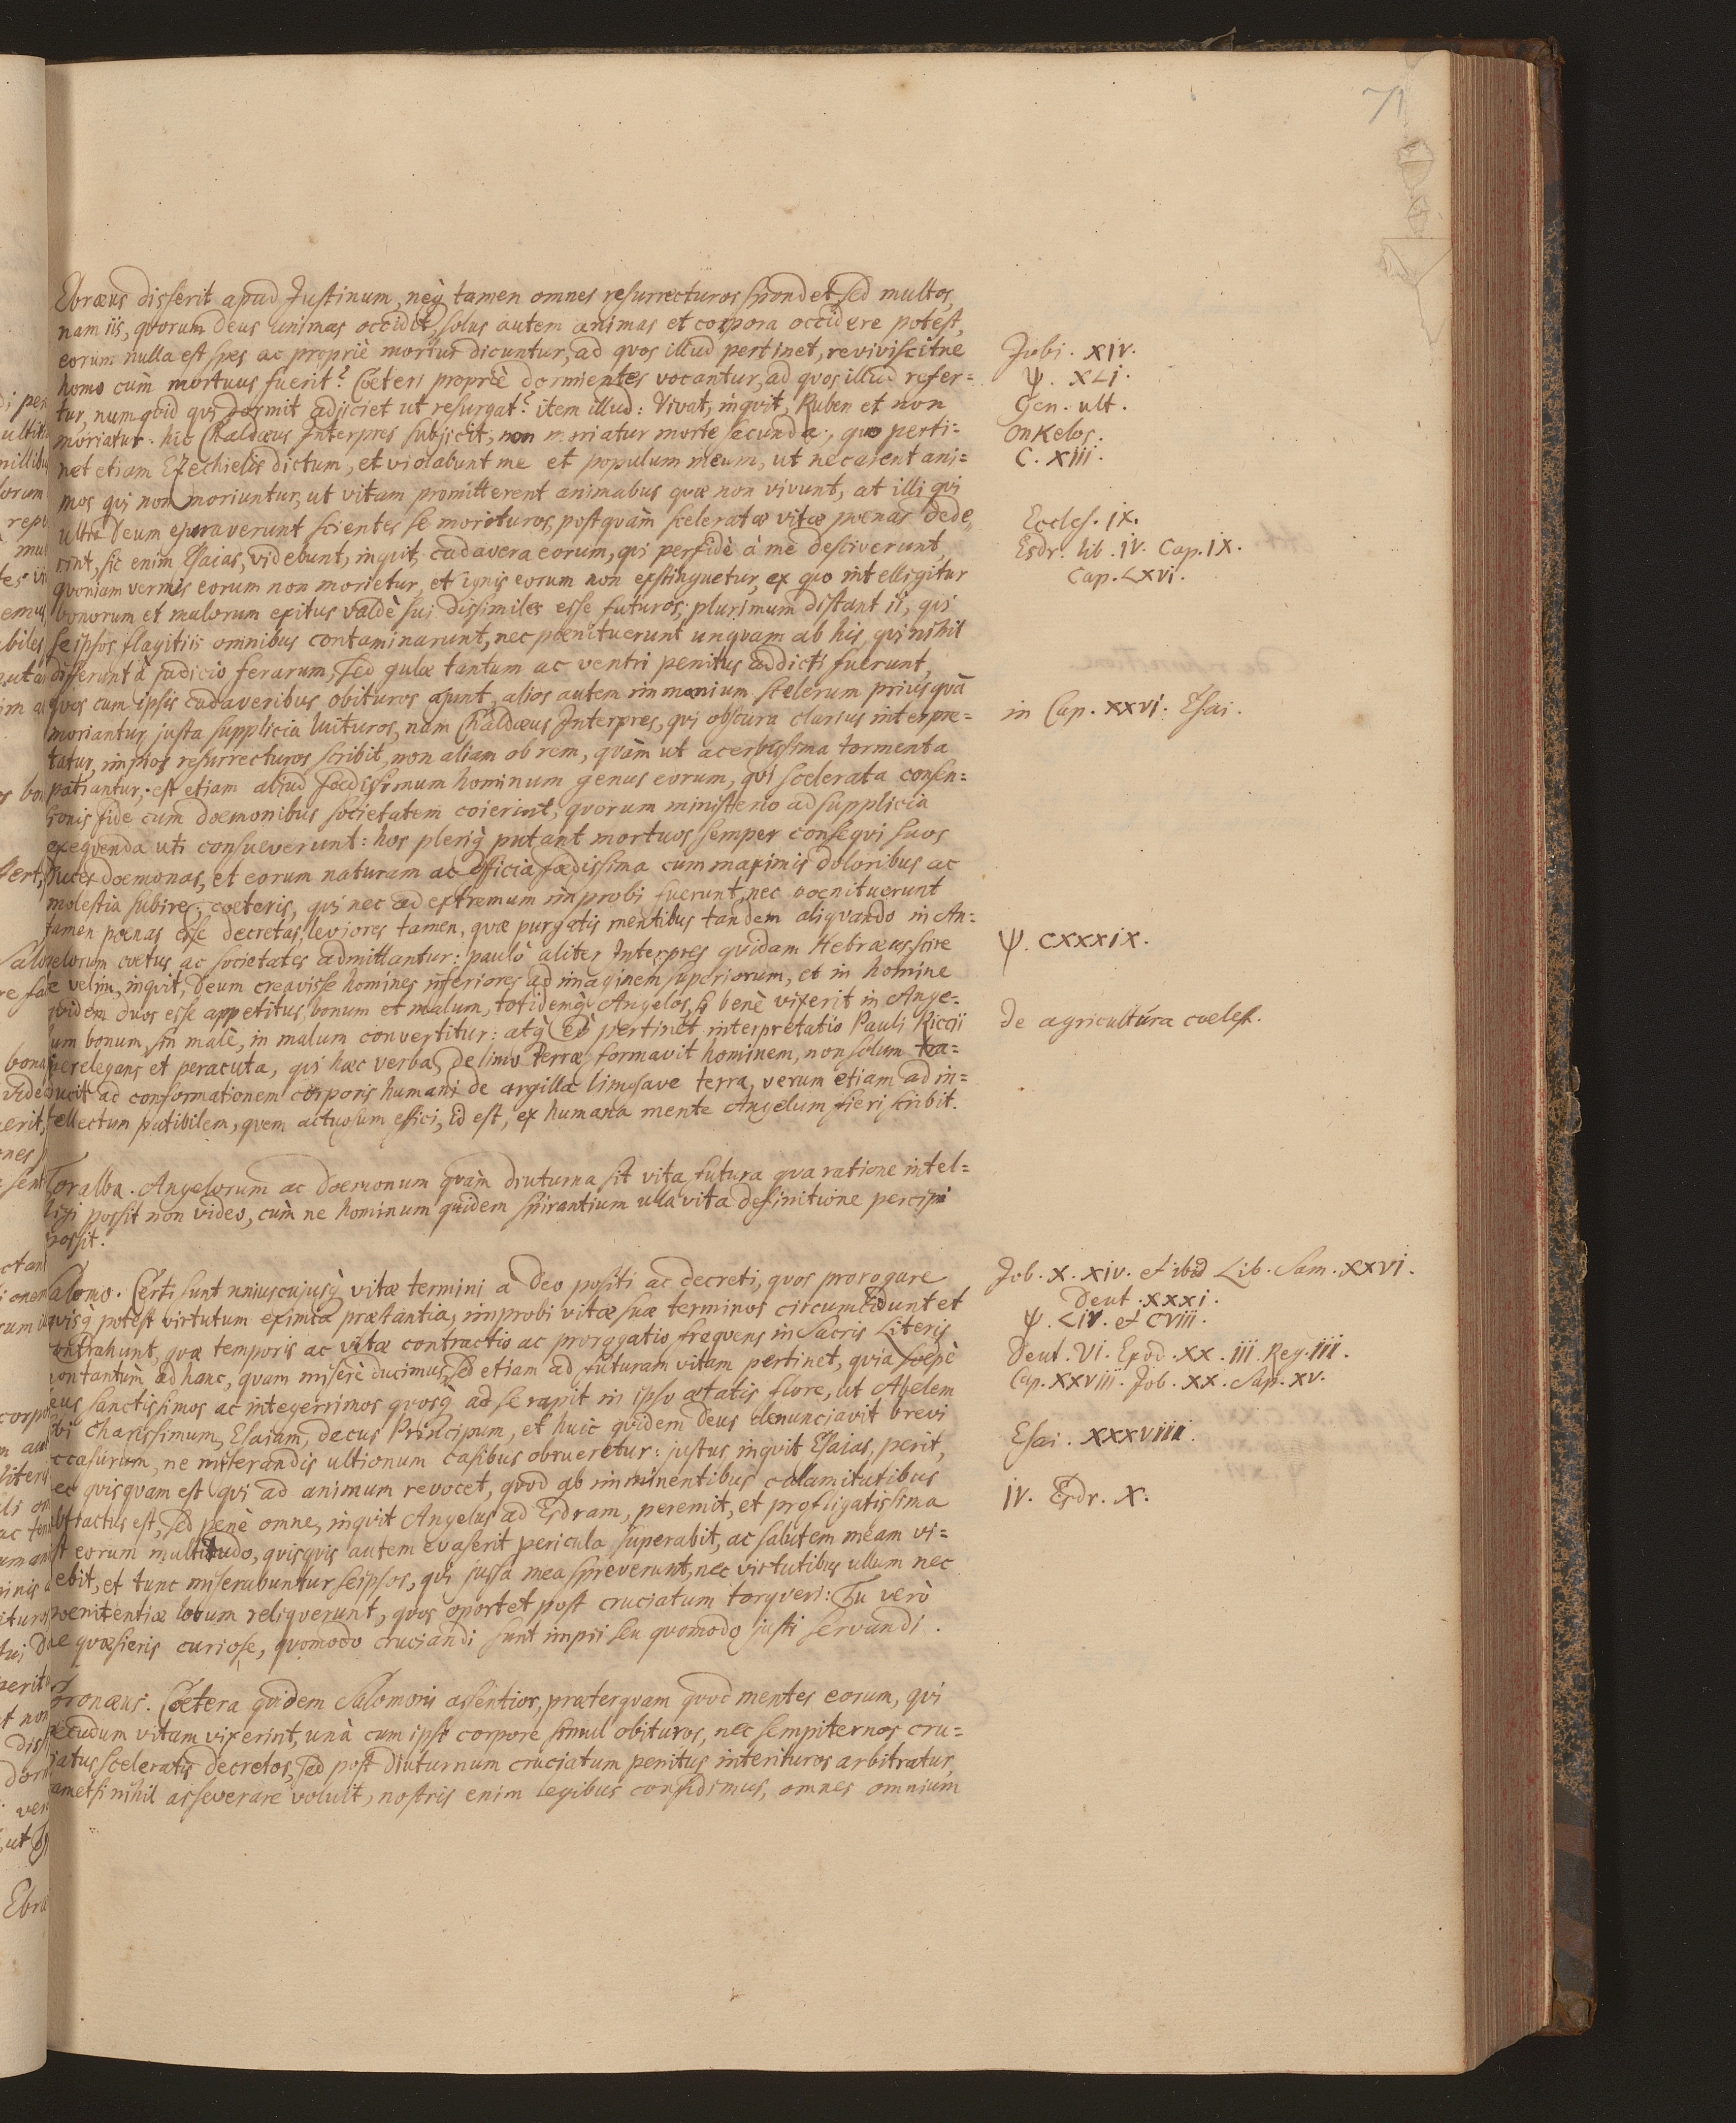 71
Ebræus disserit apud Justinum, neq̀ tamen omnes resurrecturos spondet, sed multos,
nam iis, quorum Deus animas occidit, solus autem animas et corpora occidere potest,
eorum nulla est spes ac propriè mortui dicuntur, ad quos illud pertinet, reviviscitne
Jobi. XIV.
homo cùm mortuus fuerit? Cœteri propriè dormientes vocantur, ad quos illud refer=
ψ. XLI.
tur, numquid qvi dormit adjiciet ut resurgat? item illud: Vivat, inqvit, Ruben et non
Gen. ult.
moriatur. hic Chaldæus Interpres subjicit, non moriatur morte secunda, quo perti=
Onkelos.
net etiam Ezechielis dictum, et violabunt me et populum meum, ut necarent ani=
C. XIII.
mos qvi non moriuntur, ut vitam promitterent animabus quæ non vivunt, at illi qvi
ultra Deum speraverunt scientes se morituros, postquàm sceleratæ vitæ pœnas dede,
Eccles. IX.
rint, sic enim Esaias, videbunt, inquit, cadavera eorum, qvi perfidè à me desciverunt,
Esdr. lib. IV. Cap. IX.
qvoniam vermis eorum non morietur, et ignis eorum non exstinguetur, ex quo intelligitur
Cap. LXVI.
bonorum et malorum exitus valdè sui dissimiles esse futuros, plurimum distant ii, qvi
seipsos flagitiis omnibus contaminarunt, nec pœnituerunt unqvam ab his, qvi nihil
differunt à judicio ferarum, sed gulæ tantum ac ventri penitus addicti fuerunt,
qvos cum ipsis cadaveribus obituros ajunt, alios autem immanium scelerum priusquā
moriantur, justa supplicia luituros, nam Chaldæus Interpres, qvi obscura clarius interpre=
in Cap. XXVI. Esai.
tatur, impios resurrecturos scribit, non aliam ob rem, quàm ut acerbissima tormenta
patiantur, est etiam aliud fœdissimum hominum genus eorum, qvi scelerata consen=
sionis fide cum dœmonibus societatem coierint, qvorum ministerio ad supplicia
exeqvenda uti consueverunt: hos pleriq̀ putant mortuos semper conseqvi suos
duces dœmonas, et eorum naturam ac officia fœdissima cum maximis doloribus ac
molestia subire, cœteris, qvi nec ad extremum improbi fuerunt, nec pœnituerunt
tamen pœnas esse decretas, leviores tamen, quæ purgatis mentibus tandem aliqvando in An=
gelorum cœtus ac societates admittantur: paulò aliter Interpres qvidam Hebræus scire
ψ. CXXXIX.
se velim, inqvit, Deum creavisse homines inferiores ad imaginem superiorum, et in homine
qvidem duos esse appetitus, bonum et malum, totidemq̀ Angelos, si benè vixerit in Ange=
lum bonum, sin malè, in malum convertitur: atq̀ eò pertinet interpretatio Pauli Riccii
de agricultúra cœlest.
perelegans et peracuta, qvi hæc verba, de limo terræ formavit hominem, non solum tra=
ducit ad conformationem corporis humani de argilla limosave terra, verum etiam ad in=
tellectum patibilem, qvem actuosum effici, id est, ex humana mente Angelum fieri scribit.
Toralba. Angelorum ac dœmonum quàm diuturna sit vita futura qva ratione intel=
ligi possit non video, cùm ne hominum quidem spirantium ulla vita definitione percipi
possit.
Salomo. Certi sunt uniuscujusq̀ vitæ termini a Deo positi ac decreti, quos prorogare
Job. X. XIV. et ibid Lib. Sam. XXVI.
qvisq̀ potest virtutum eximia præstantia, improbi vitæ suæ terminos circumcidunt et
Deut. XXXI.
contrahunt, quæ temporis ac vitæ contractio ac prorogatio freqvens in Sacris Literis
ψ. LIV. et CVIII.
non tantùm ad hanc, quam miserè ducimus, sed etiam ad futuram vitam pertinet, quia sœpè
Deut. VI. Exod. XX. III. Reg. III.
Deus sanctissimos ac integerrimos quosq̀ ad se rapit in ipso ætatis flore, ut Abelem
Cap. XXVIII. Job. XX. Sap. XV.
sibi charissimum, Esaiam, decus Principum, et huic qvidem Deus denunciavit brevi
occasurum, ne miserandis ultionum casibus obrueretur: justus inquit Esaias, perit,
Esai. XXXVIII.
nec quisquam est qvi ad animum revocet, quod ab imminentibus calamitatibus
abstractus est, sed penè omne, inqvit Angelus ad Esdram, peremit, et profligatissima
IV. Esdr. X.
est eorum multitudo, quisquis autem evaserit pericula superabit, ac salutem meam vi=
debit, et tunc miserabuntur seipsos, qvi jussa mea spreverunt, nec virtutibus ullum nec
pœnitentiæ locum reliqverunt, quos oportet post cruciatum torqveri: Tu verò
ne quæsieris curiose, qvomodo cruciandi sunt impii seu quomodo justi servandi.
Coronæus. Cœtera qvidem Salomoni assentior, præterquam qvod mentes eorum, qvi
pecudum vitam vixerint, unà cum ipso corpore simul obituros, nec sempiternos cru=
ciatus sceleratis decretos, sed post diuturnum cruciatum penitus interituros arbitratur,
tametsi nihil asseverare voluit, nostris enim legibus confidimus, omnes omnium